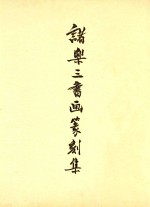 諸樂三書画篆刻集